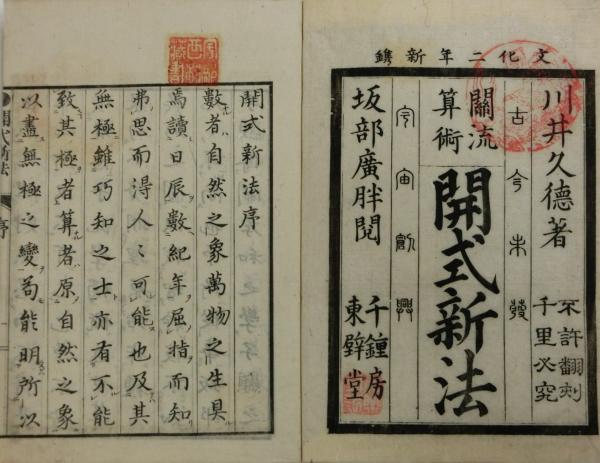 文化二年新鐫
川井久德著
不許翻刻
千里必究
古今未發
關流
算術
開式新法
宇宙創興
坂部廣胖閱
千鐘房
東壁堂
開式新法序
數者自然之象萬物之生具
焉讀日辰數紀年屈指而知
弗思而得人〻可能也及其
無極雖巧知之士亦有不能
致其極者算者原自然之象
以盡無極之變苟能明所以
開式新法
序